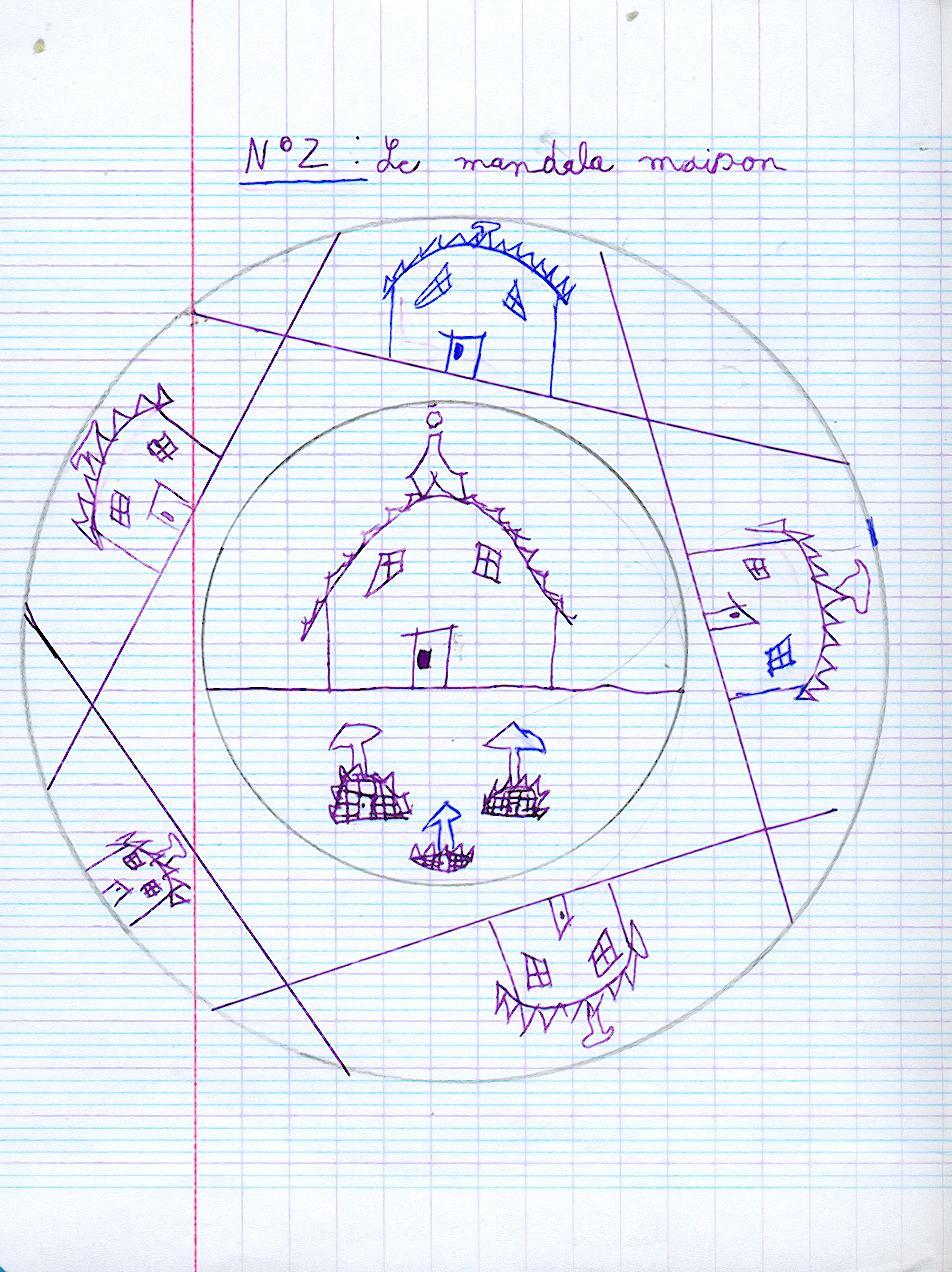 N°2 : Le mandala maison